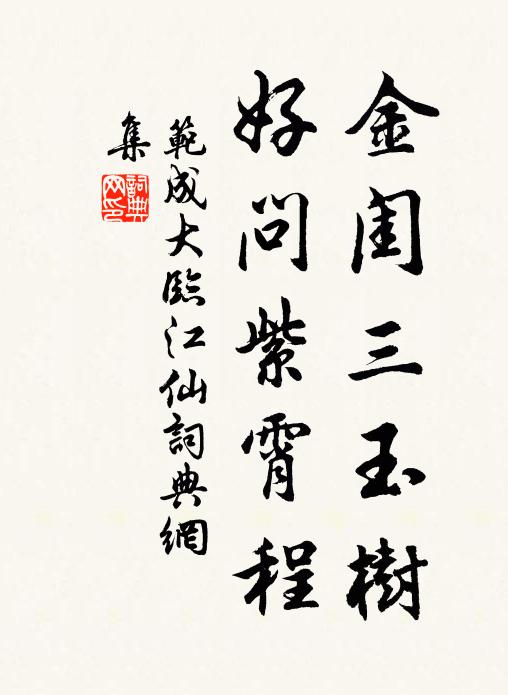 金闺三玉樹
好問紫霄程
範成大臨江仙詞典網
集
詞典网印